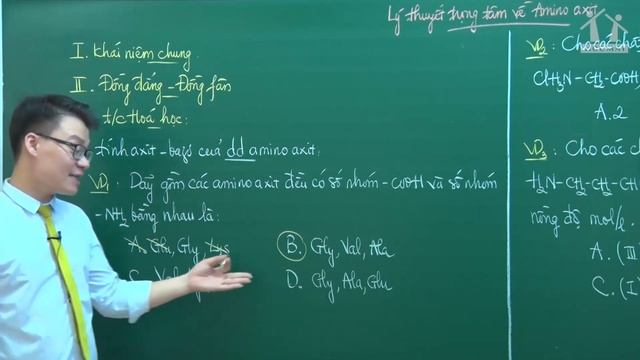 Lý thuyết trọng tâm về Amino axit
I. Khái niệm chung
II. Đồng đẳng - Đồng fân
t/c Hoá học:
tính axit - bazơ của dd amino axit.
VD1: Dãy gồm các amino axit đều có số nhóm -COOH và số nhóm
-NH2 bằng nhau là:
A. Glu, Gly, Lys
B. Gly, Val, Ala
C. Val
D. Gly, Ala, Glu
VD2: Cho các chấ
ClH3N-CH2-COOH
A. 2
VD3: Cho các c
H2N-CH2-CH2-
nồng độ mol/l.
A. (III
C. (I)